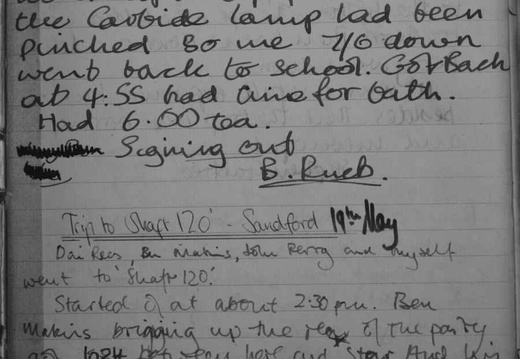 the Carbide lamp had been
pinched so me 7/6 down
went back to school. Got Back
at 4:55 had time for bath.
Had 6.00 tea.
Signing out
B. Rueb.
Trip to Shaft 120' - Sandford 19th May
Dai Rees, Ben Makins, John Perry and myself
went to 'Shaft 120'.
Started of at about 2:30 pm. Ben
Makins brigging up the rear of the party
and between here and Star